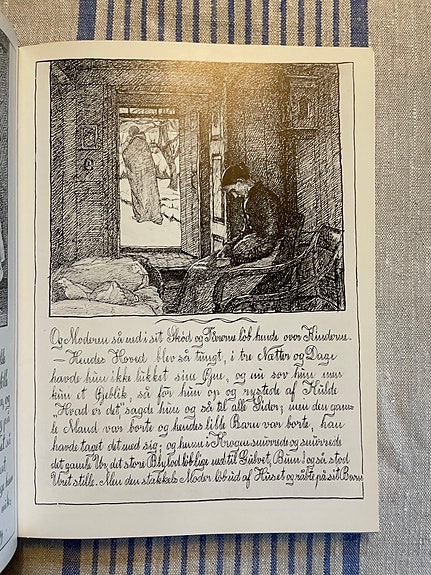 Og Moderen så ned i sit Skød og Tårerne løb hende over Kinderne.
— Hendes Hoved blev så tungt, i tre Nætter og Dage
havde hun ikke lukket sine Øjne, og nu sov hun men
kun et Øjeblik, så fór hun op og rystede af Kulde
"Hvad er det", sagde hun og så til alle Sider; men den gam-
le Mand var borte og hendes lille Barn var borte, han
havde taget det med sig; og henne i Krogen snurrede og snurrede
det gamle Ur, det store Blylod løb lige ned til Gulvet, Bum! og så stod
Uret stille. Men den stakkels Moder løb ud af Huset og råbte på sit Barn